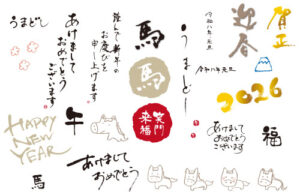 うまどし
あけまして
おめでとう
ございます
謹んで新年の
お慶びを
申し上げます
馬
馬
うまどし
令和八年元旦
迎春
賀正
令和八年元旦
2026
HAPPY
NEW
YEAR
午
笑門
来福
あけまして
おめでとう
ございます
福
馬
あけまして
おめでとう